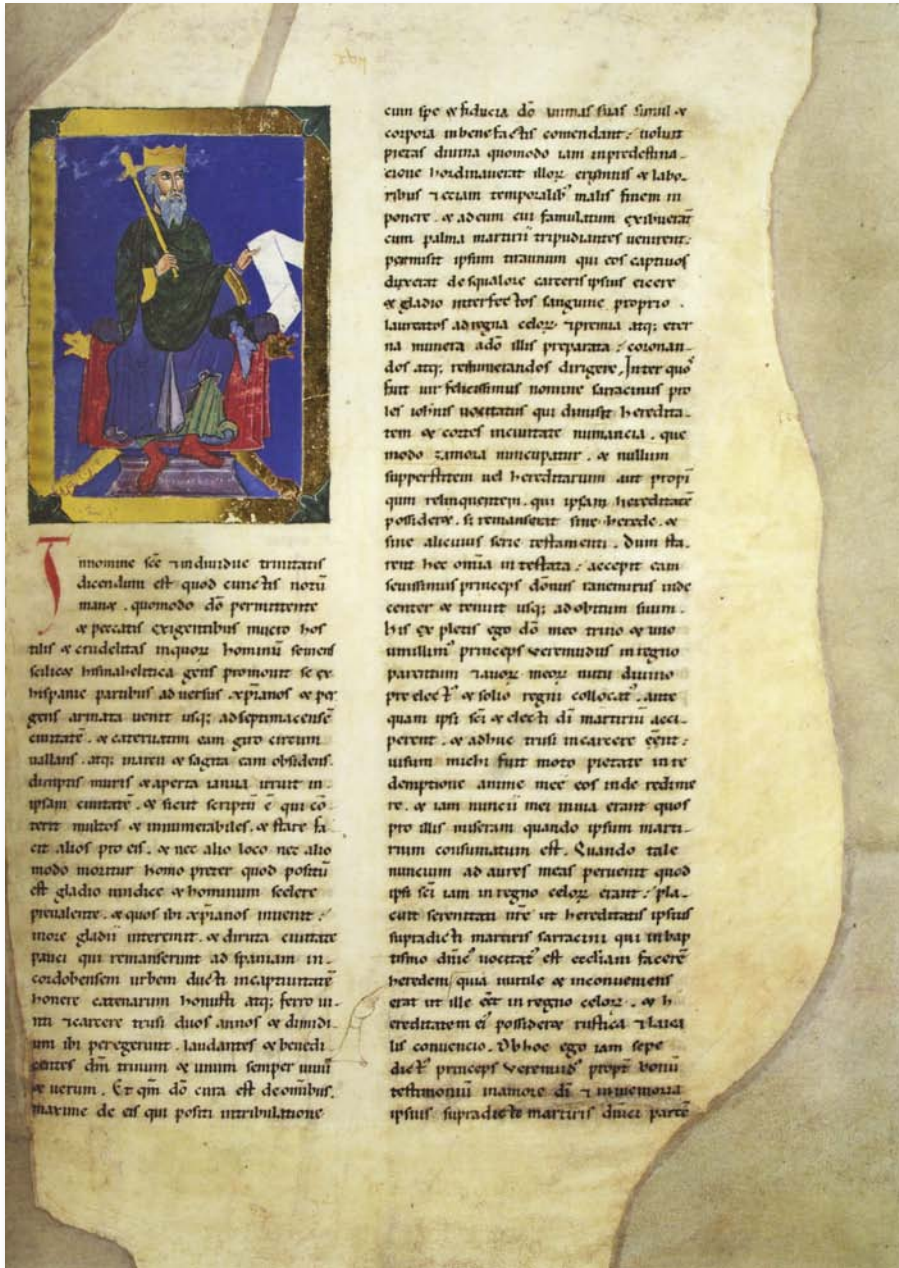 In nomine sc̄e ⁊ indiuidue trinitatis
dicendum est quod cunctis notū
mane . quomodo dō permittente
& peccatis exigentibus mucro hos
tilis & crudelitas iniquoꝝ hominū semens
scilicet hismahelitica gens promouit se ex
hispanie partibus aduersus xp̄ianos & per
gens armata uenit usq; ad septimacensē
ciuitatē . & cateruatim eam giro circum
uallans . atq; murū & sagita eam obsidens .
diruptis muris & aperta ianua irruit in
ipsam ciuitatē . & sicut scriptū ē qui cō
terit multos & innumerabiles . & stare fa
cit alios pro eis . & nec alio loco nec alio
modo moritur homo preter quod positū
est gladio uindice & hominum scelere
preualente . & quos ibi xp̄ianos inuenit :
more gladii interemit . & diruta ciuitate
pauci qui remanserunt ad spaniam in
cordobensem urbem ducti in captiuitatē
honere catenarum honusti atq; ferro ui-
nti ⁊ carcere trusi duos annos & dimidi
um ibi peregerunt . laudantes & benedi
centes dm̄ trinum & unum semper uiuū
& uerum . Et qm̄ dō cura est de omībus .
maxime de eis qui positi in tribulatione
cum spe & fiducia dō animas suas simul &
corpora in benefactis comendant : uoluit
pietas diuina quomodo iam in predestina-
cione hordinauerat illoꝝ erumnis & labo-
ribus ⁊ eciam temporalibꝰ malis finem in
ponere . & ad eum cui famulatum exibuerāt
cum palma martirii tripudiantes uenirent :
permisit ipsum tirannum qui eos captiuos
duxerat de squalore carceris ipsius eicere
& gladio interfectos sanguine proprio .
laureatos ad regna celoꝝ ⁊ premia atq; eter
na munera a dō illis preparata : coronan-
dos atq; remunerandos dirigere , Inter quoˢ
fuit uir felicissimus nomine sarracinus pro
les iohīnis uocitatus qui dimisit heredita-
tem & cortes in ciuitate numancia . que
modo zamora nuncupatur . & nullum
supperstitem uel hereditarum aut propi
qum relinquentem . qui ipsam hereditatē
possideret . si remanserat sine herede . &
sine alicuius serie testamenti . Dum sta-
rent hec omīa intestata : accepit eam
seuissimus princeps dōnus ranemirus inde
center & tenuit usq; ad obitum suum .
his expletis ego dō meo trino & uno
umillimꝰ princeps ueremudus in regno
parentum ⁊ auoꝝ meoꝝ nutu diuino
preelectꝰ & solio regni collocatꝰ . ante
quam ipsi sc̄i & electi dī martiriū acci-
perent . & adhuc trusi in carcere eēnt :
uisum michi fuit moto pietate in re
demptione anime mee eos inde redime
re . & iam nuncii mei in uia erant quos
pro illis miseram quando ipsum marti-
rium consumatum est . Quando tale
nuncium ad aures meas peruenit quod
ipsi sc̄i iam in regno celoꝝ erant : pla-
cuit serenitati nr̄e ut hereditatis ipsius
supradicti martiris sarracini qui in bap
tismo dnīc̄ uocitatꝰ est eccliam facerē
heredem quia inutile & inconueniens
erat ut ille eēt in regno celoꝝ . & h
ereditatem eiꝰ possideret rustica ⁊ laica
lis conuencio . Ob hoc ego iam sepe
dictꝰ princeps Veremudꝰ propt̄ bonū
testimoniū in amore dī ⁊ in memoria
ipsius supradicte martiris dnīci partē